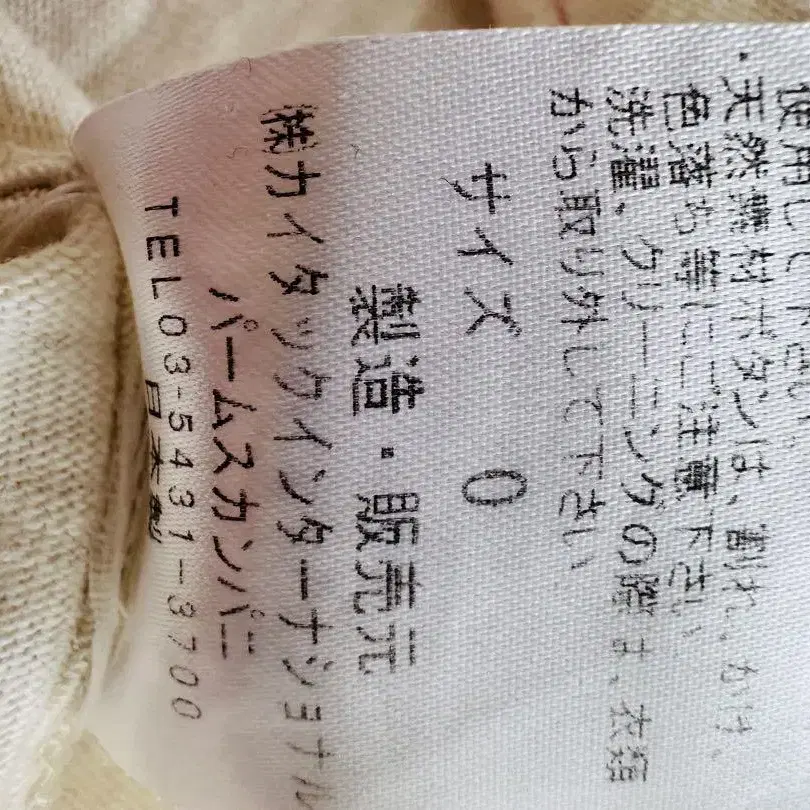 使用して下さい
・天然素材ボタンは、割れ、かけ、
色落ち等にご注意下さい
洗濯、クリーニングの際は、衣類
から取り外して下さい
サイズ 0
製造・販売元
㈱カイタックインターナショナル
パームスカンパニー
TEL03-5431-3700
日本製